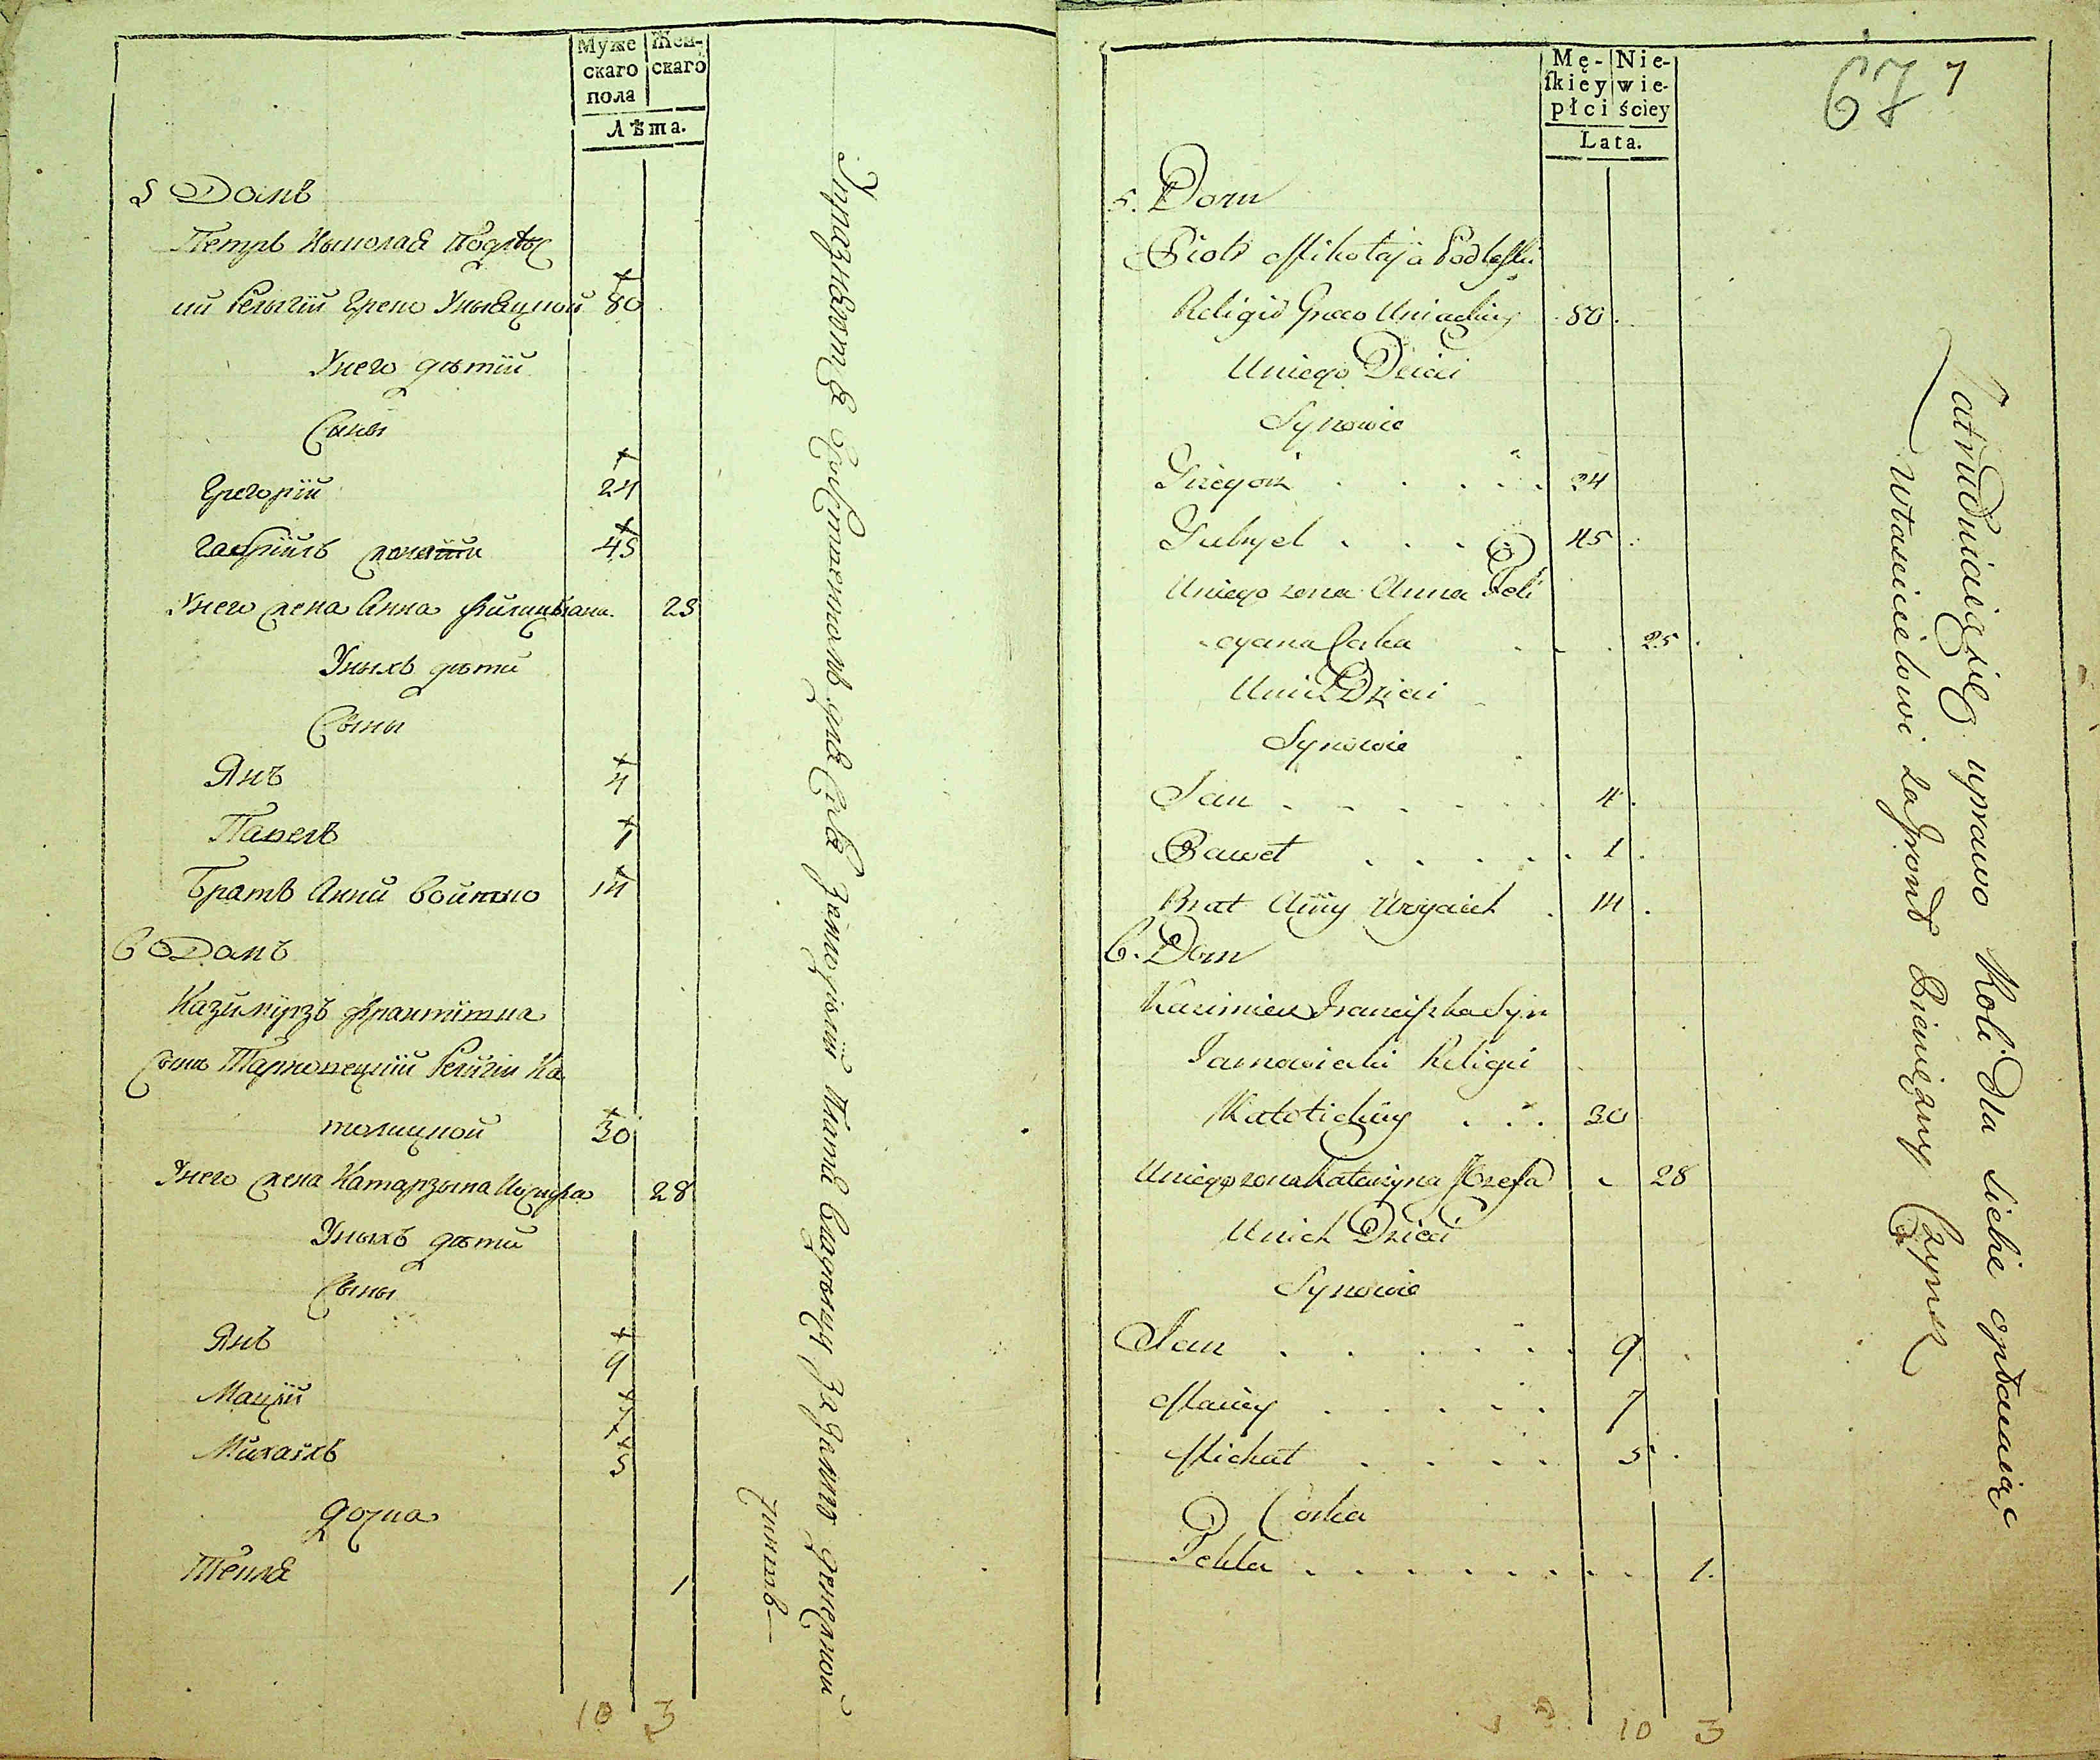 Муже
скаго
пола
Жен-
скаго
Лѣта.
5 Домъ
Петръ Николая Подлѣс
ки Религіи Греко Уніяцкой 80
Унего дѣтій
Сыны
Григорій 24
Габріиль 45
Унего жена Анна 25
Унихъ дѣти
Сыны
Янъ 4
Павелъ 1
Братъ Анни Войтко 14
6 Домъ
Казимірзъ Францишка
Сынъ Тарновецкій Религіи Ка
толицкой 30
Унего жена Катарзына Іозефа 28
Унихъ дѣти
Сыны
Янъ 9
Мацѣй 7
Михаилъ 5
дочка
Текля 1
10 3
Упражняются для Себя Платя Владѣльцу за денежной
Чиншъ
Mę-
skiey
płci
Nie-
wie-
ściey
Lata.
67 7
5. Dom
Piotr Mikołaja Podleski
Religii Greco Uniackiey 80
Uniego Dzieci
Synowie
Grzegorz 24
Gabryel 45
Uniego zona Anna Feli
cyana Corka 25
Unich Dzieci
Synowie
Jan 4
Paweł 1
Brat Anny Woyciech 14
6. Dom
Kazimierz Franciszka Syn
Tarnowiecki Religii
Katolickiey 30
Uniego zona Katarzyna Jozefa 28
Unich Dzieci
Synowie
Jan 9
Maciey 7
Michał 5
Corka
Tekla 1
10 3
Zatrudniaią się uprawą Roli dla siebie opłacaiąc
Włascicielowi za Gront Pieniężny Czynsz